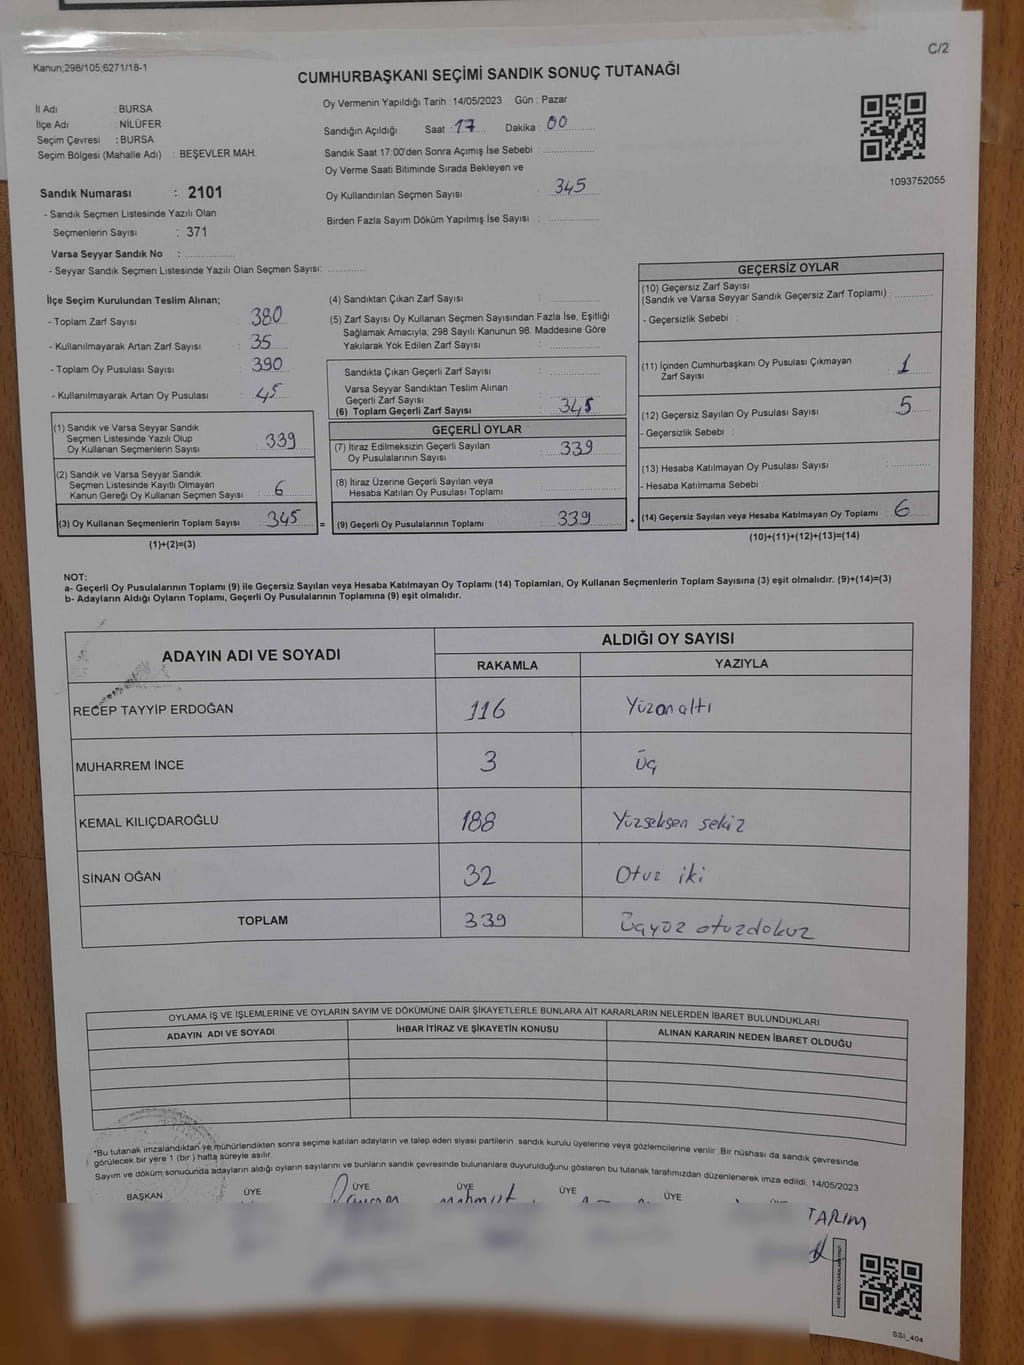 C/2
Kanun;298/105;6271/18-1
CUMHURBAŞKANI SEÇİMİ SANDIK SONUÇ TUTANAĞI
İl Adı : BURSA
İlçe Adı : NİLÜFER
Seçim Çevresi : BURSA
Seçim Bölgesi (Mahalle Adı) : BEŞEVLER MAH.
Oy Vermenin Yapıldığı Tarih : 14/05/2023 Gün : Pazar
Sandığın Açıldığı Saat : 17 Dakika : 00
Sandık Saat 17:00'den Sonra Açımış İse Sebebi :
Oy Verme Saati Bitiminde Sırada Bekleyen ve
Oy Kullandırılan Seçmen Sayısı : 345
Birden Fazla Sayım Döküm Yapılmış İse Sayısı :
1093752055
Sandık Numarası : 2101
- Sandık Seçmen Listesinde Yazılı Olan
Seçmenlerin Sayısı : 371
Varsa Seyyar Sandık No :
- Seyyar Sandık Seçmen Listesinde Yazılı Olan Seçmen Sayısı:
İlçe Seçim Kurulundan Teslim Alınan;
- Toplam Zarf Sayısı : 380
- Kullanılmayarak Artan Zarf Sayısı : 35
- Toplam Oy Pusulası Sayısı : 390
- Kullanılmayarak Artan Oy Pusulası : 45
(1) Sandık ve Varsa Seyyar Sandık
Seçmen Listesinde Yazılı Olup
Oy Kullanan Seçmenlerin Sayısı : 339
(2) Sandık ve Varsa Seyyar Sandık
Seçmen Listesinde Kayıtlı Olmayan
Kanun Gereği Oy Kullanan Seçmen Sayısı : 6
(3) Oy Kullanan Seçmenlerin Toplam Sayısı : 345 =
(1)+(2)=(3)
(4) Sandıktan Çıkan Zarf Sayısı :
(5) Zarf Sayısı Oy Kullanan Seçmen Sayısından Fazla İse, Eşitliği
Sağlamak Amacıyla; 298 Sayılı Kanunun 98. Maddesine Göre
Yakılarak Yok Edilen Zarf Sayısı :
Sandıkta Çıkan Geçerli Zarf Sayısı :
Varsa Seyyar Sandıktan Teslim Alınan
Geçerli Zarf Sayısı :
(6) Toplam Geçerli Zarf Sayısı : 345
GEÇERLİ OYLAR
(7) İtiraz Edilmeksizin Geçerli Sayılan
Oy Pusulalarının Sayısı : 339
(8) İtiraz Üzerine Geçerli Sayılan veya
Hesaba Katılan Oy Pusulası Toplamı :
(9) Geçerli Oy Pusulalarının Toplamı : 339 +
GEÇERSİZ OYLAR
(10) Geçersiz Zarf Sayısı
(Sandık ve Varsa Seyyar Sandık Geçersiz Zarf Toplamı) :
- Geçersizlik Sebebi :
(11) İçinden Cumhurbaşkanı Oy Pusulası Çıkmayan
Zarf Sayısı : 1
(12) Geçersiz Sayılan Oy Pusulası Sayısı : 5
- Geçersizlik Sebebi :
(13) Hesaba Katılmayan Oy Pusulası Sayısı :
- Hesaba Katılmama Sebebi :
(14) Geçersiz Sayılan veya Hesaba Katılmayan Oy Toplamı : 6
(10)+(11)+(12)+(13)=(14)
NOT:
a- Geçerli Oy Pusulalarının Toplamı (9) ile Geçersiz Sayılan veya Hesaba Katılmayan Oy Toplamı (14) Toplamları, Oy Kullanan Seçmenlerin Toplam Sayısına (3) eşit olmalıdır. (9)+(14)=(3)
b- Adayların Aldığı Oyların Toplamı, Geçerli Oy Pusulalarının Toplamına (9) eşit olmalıdır.
ADAYIN ADI VE SOYADI
ALDIĞI OY SAYISI
RAKAMLA YAZIYLA
RECEP TAYYİP ERDOĞAN 116 Yüzonaltı
MUHARREM İNCE 3 Üç
KEMAL KILIÇDAROĞLU 188 Yüzseksen sekiz
SİNAN OĞAN 32 Otuz iki
TOPLAM 339 Üçyüz otuzdokuz
OYLAMA İŞ VE İŞLEMLERİNE VE OYLARIN SAYIM VE DÖKÜMÜNE DAİR ŞİKAYETLERLE BUNLARA AİT KARARLARIN NELERDEN İBARET BULUNDUKLARI
ADAYIN ADI VE SOYADI İHBAR İTİRAZ VE ŞİKAYETİN KONUSU ALINAN KARARIN NEDEN İBARET OLDUĞU
*Bu tutanak imzalandıktan ve mühürlendikten sonra seçime katılan adayların ve talep eden siyasi partilerin sandık kurulu üyelerine veya gözlemcilerine verilir. Bir nüshası da sandık çevresinde
görülecek bir yere 1 (bir) hafta süreyle asılır.
Sayım ve döküm sonucunda adayların aldığı oyların sayılarını ve bunların sandık çevresinde bulunanlara duyurulduğunu gösteren bu tutanak tarafımızdan düzenlenerek imza edildi. 14/05/2023
BAŞKAN ÜYE ÜYE ÜYE ÜYE ÜYE
TARIM
SSİ_404